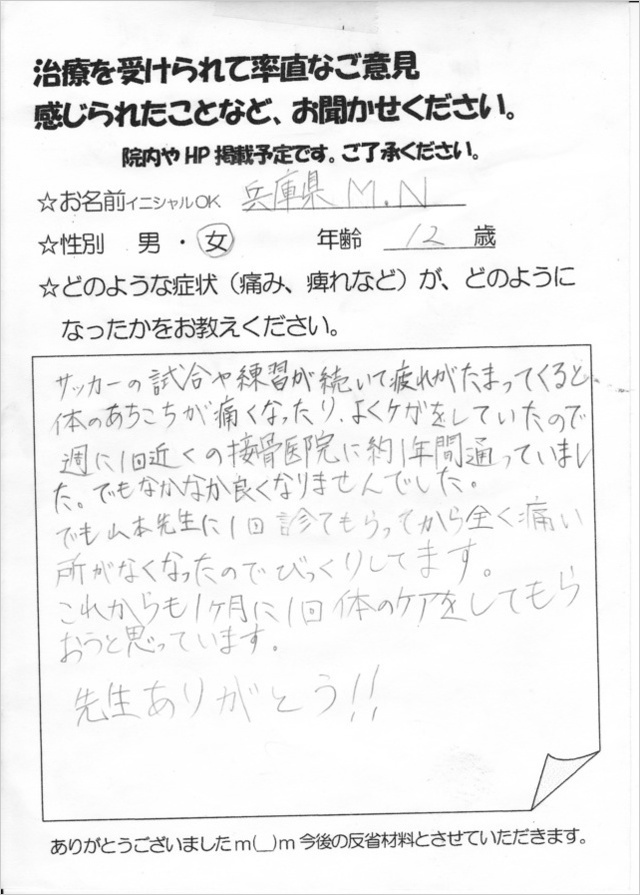 治療を受けられて率直なご意見
感じられたことなど、お聞かせください。
院内やHP掲載予定です。ご了承ください。
☆お名前イニシャルOK 兵庫県 M.N
☆性別 男・女 年齢 12 歳
☆どのような症状（痛み、痺れなど）が、どのように
なったかをお教えください。
サッカーの試合や練習が続いて疲れがたまってくると
体のあちこちが痛くなったり、よくケガをしていたので
週に1回近くの接骨医院に約1年間通っていまし
た。でもなかなか良くなりませんでした。
でも山本先生に1回診てもらってから全く痛い
所がなくなったのでびっくりしてます。
これからも1ヶ月に1回体のケアをしてもら
おうと思っています。
先生ありがとう!!
ありがとうございましたm(__)m今後の反省材料とさせていただきます。